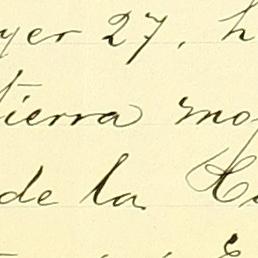 yer 27, h
tierra mo
de la C